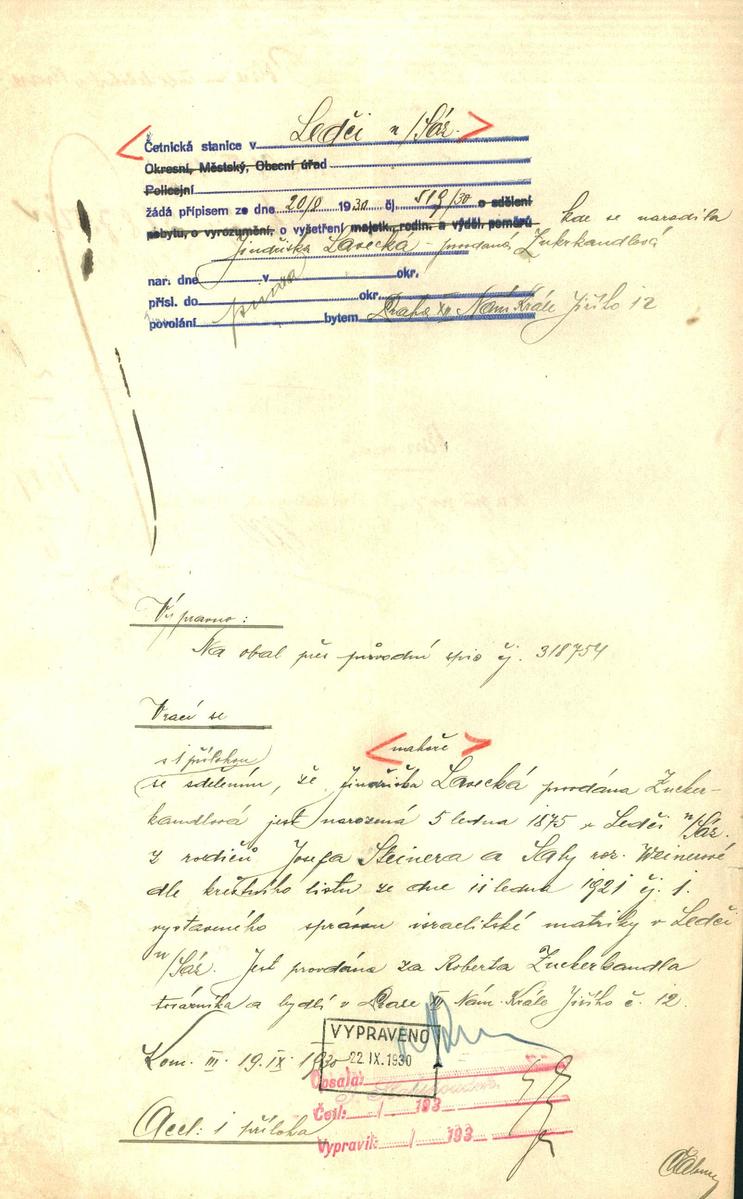 Četnická stanice v Ledči n/Sáz.
Okresní, Městský, Obecní úřad
Policejní
žádá přípisem ze dne 20/8 1930 čj 519/30 o sdělení
pobytu, o vyrozumění, o vyšetření majetk. rodin. a výděl. poměrů kde se narodila
Jindřiška Lavecká - provdaná Zukrkandlová
nar. dne v okr.
přísl. do okr.
povolání bytem Praha XII Nám. Krále Jiřího 12
Výpravno:
Na obal přes původní spis čj. 318754
Vrací se
s 1 přílohou
nahoře
se sdělením, že Jindřiška Lavecká provdána Zucker-
kandlová jest narozená 5 ledna 1875 v Ledči n/Sáz.
z rodičů Josefa Steinera a Saly roz. Weinerové
dle křestního listu ze dne 11 ledna 1921 čj. 1.
vystaveného správou israelitské matriky v Ledči
n/Sáz. Jest provdána za Roberta Zuckerkandla
továrníka a bydlí v Praze XII Nám. Krále Jiřího č. 12.
VYPRAVENO
22 IX. 1930
Kom. III. 19. IX. 1930
Opsala:
Četl: / 193
Vypravil: / 193
Accl: 1 příloha